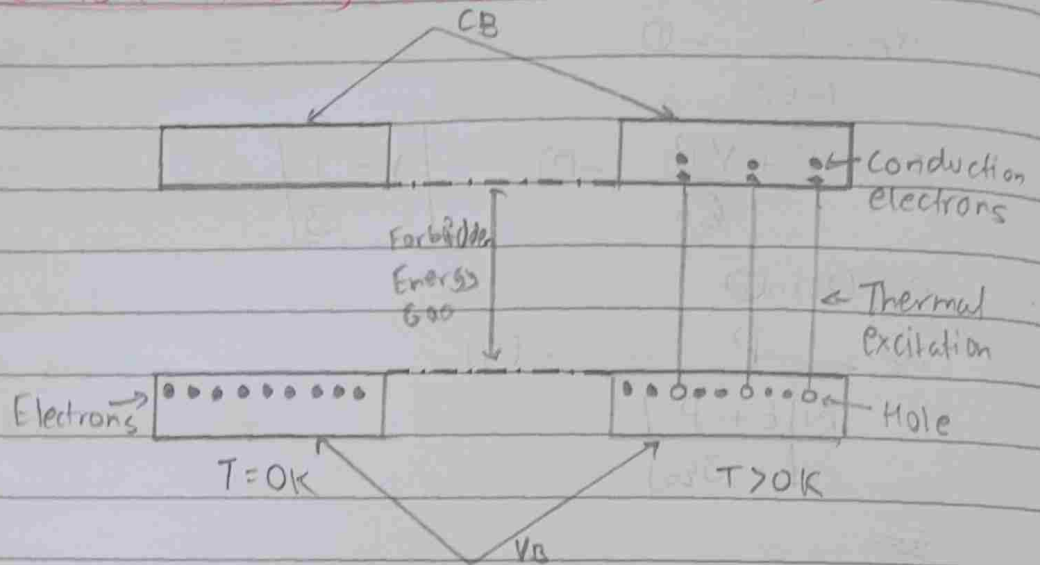 CB
Conduction
electrons
Forbidden
Energy
Gap
Thermal
excitation
Electrons
Hole
T=0K
T>0K
VB